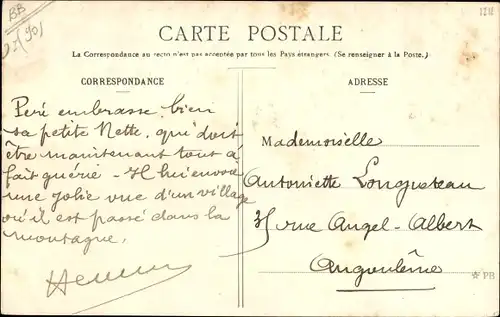 BB
1211
CARTE POSTALE
La Correspondance au recto n'est pas acceptée par tous les Pays étrangers. (Se renseigner à la Poste.)
CORRESPONDANCE
Peré embrasse bien
sa petite Nette, qui doit
être maintenant tout à
fait guérie - Il lui envoie
une jolie vue d'un village
où il est passé dans la
montagne.
ADRESSE
Mademoiselle
Antoniette Longueteau
rue Angel-Albert
Angoulême
PB